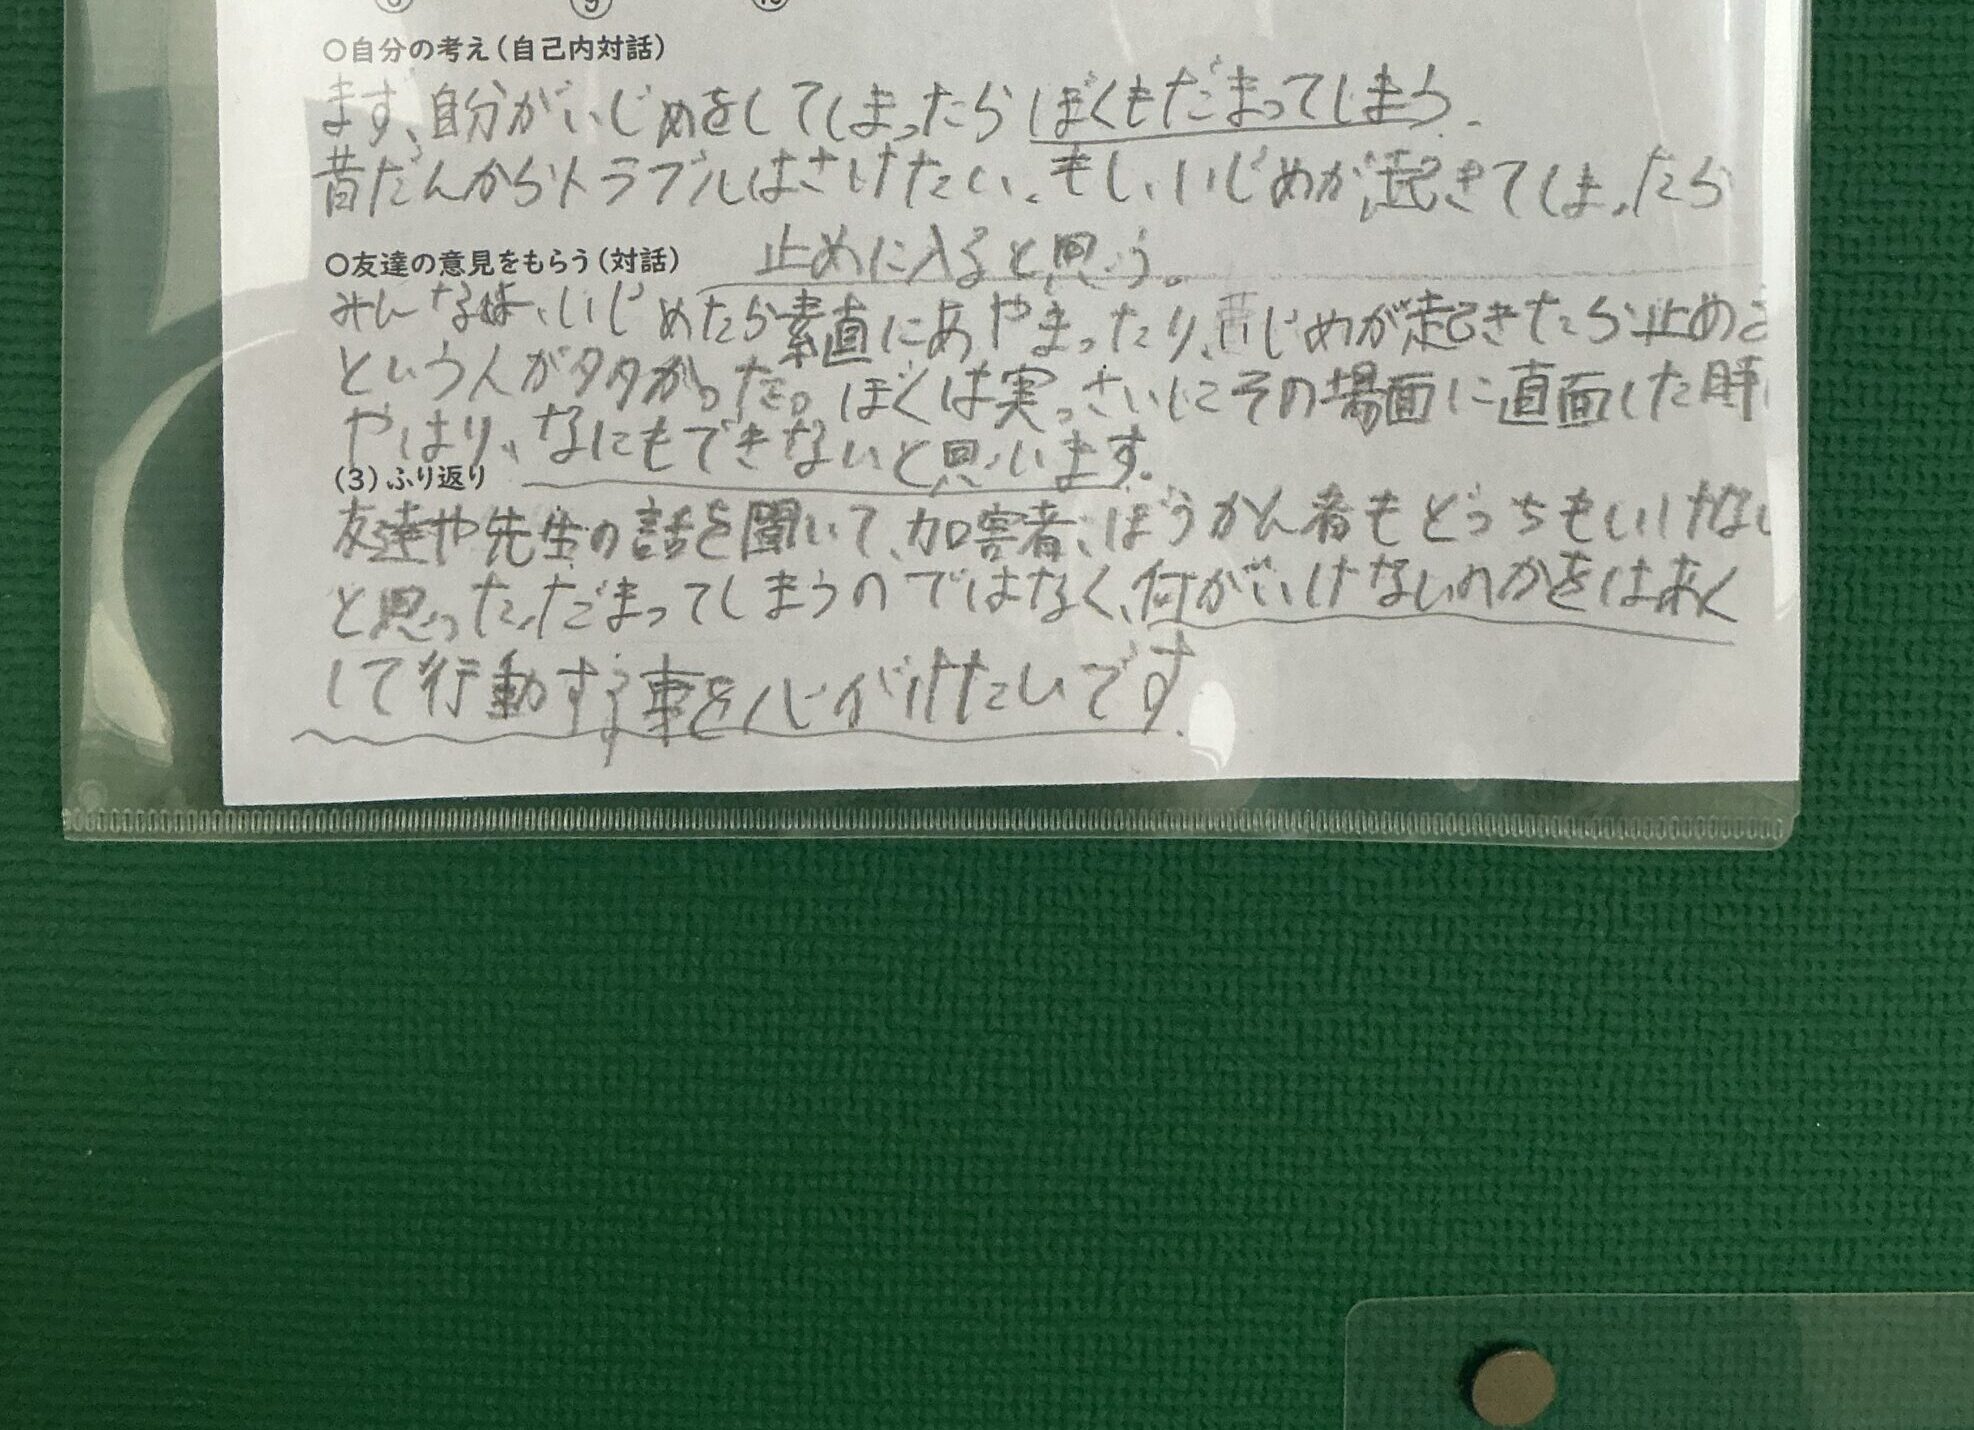 ⑧ ⑨ ⑩
○自分の考え(自己内対話)
まず、自分がいじめをしてしまったらぼくもだまってしまう。
昔だんからトラブルはさけたい。もし、いじめが起きてしまったら
止めに入ると思う。
○友達の意見をもらう(対話)
みんなは、いじめたら素直にあやまったり、いじめが起きたら止める
という人が多かった。ぼくは実っさいにその場面に直面した時
やはり、なにもできないと思います。
(3)ふり返り
友達や先生の話を聞いて、加害者、ぼうかん者もどっちもいけない
と思った。だまってしまうのではなく、何がいけないのかをはあく
して行動する事を心がけたいです